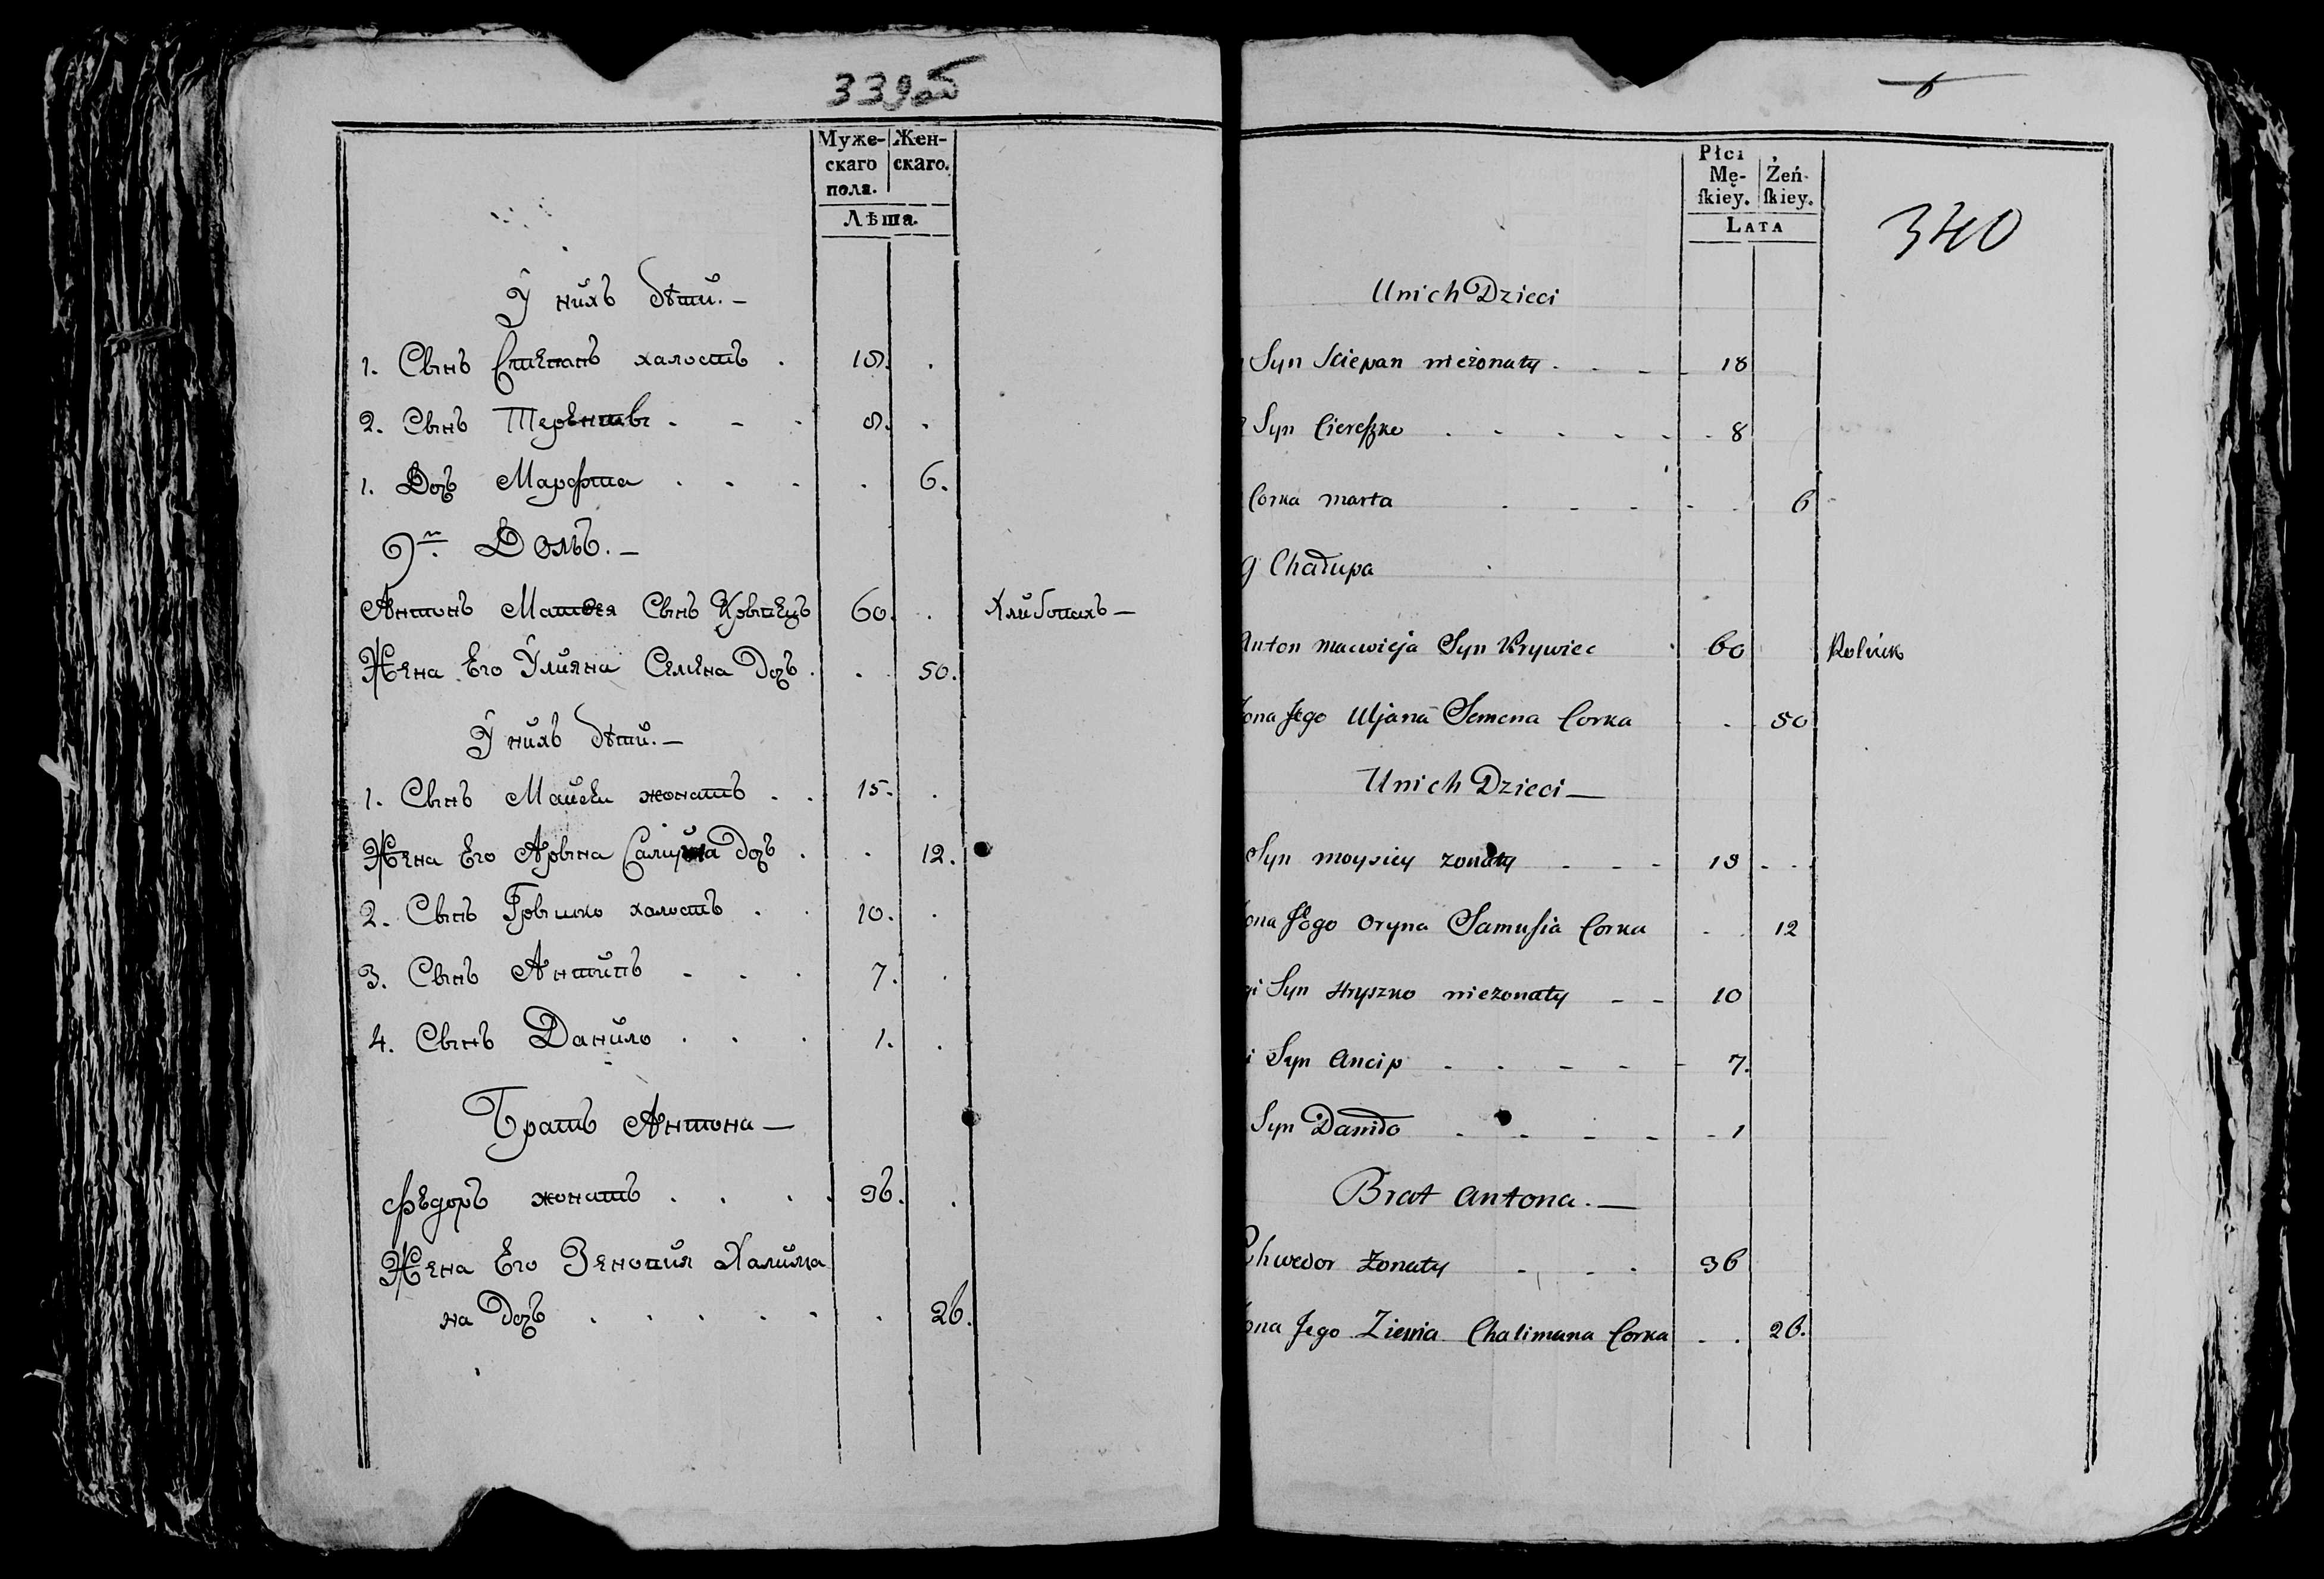 339об
Муже-
скаго
пола.
Жен-
скаго.
Лѣта.
У нихъ дѣти. —
1. Сынъ Степанъ халостъ . 18. .
2. Сынъ . - . 8. .
1. Дочь Марфта . - - . 6.
9й Домъ. —
Антонъ Матвея Сынъ Крывецъ 60. . Хлибопахъ —
Жена Его Улияна Семена Дочь . . 50.
У нихъ дѣти. —
1. Сынъ Майсей жонатъ . . 15. .
Жена Его Арына Дочь . . 12.
2. Сынъ Грышко халостъ . . 10. .
3. Сынъ Антипъ - . . 7. .
4. Сынъ Данило . . . 1. .
Братъ Антона —
Федоръ жонатъ . . . . 36. .
Жена Его Зеновия Халима
на дочь . . . . . . 26.
340
Płci
Mę-
ſkiey.
Żeń-
ſkiey.
LATA
Unich Dzieci
Syn Sciepan nieżonaty . . - - 18
Syn Ciereszko . - . - - . 8
Corka marta . - - - . 6
9 Chałupa
Anton macwieja Syn Krywiec . 60 Rolnik
Żona Jego Uljana Semena Corka - . 50
Unich Dzieci —
Syn moysiey zonaty - - - 13 - . .
Żona Jego Oryna Samusia Corka . . 12
Syn Hryszko niezonaty - - 10
Syn Ancip - . - - - 7.
Syn Daniło - - - - - 1
Brat Antona. —
Chwedor Żonaty - . - . 36
Żona Jego Zienia Chalimana Corka - . 26.